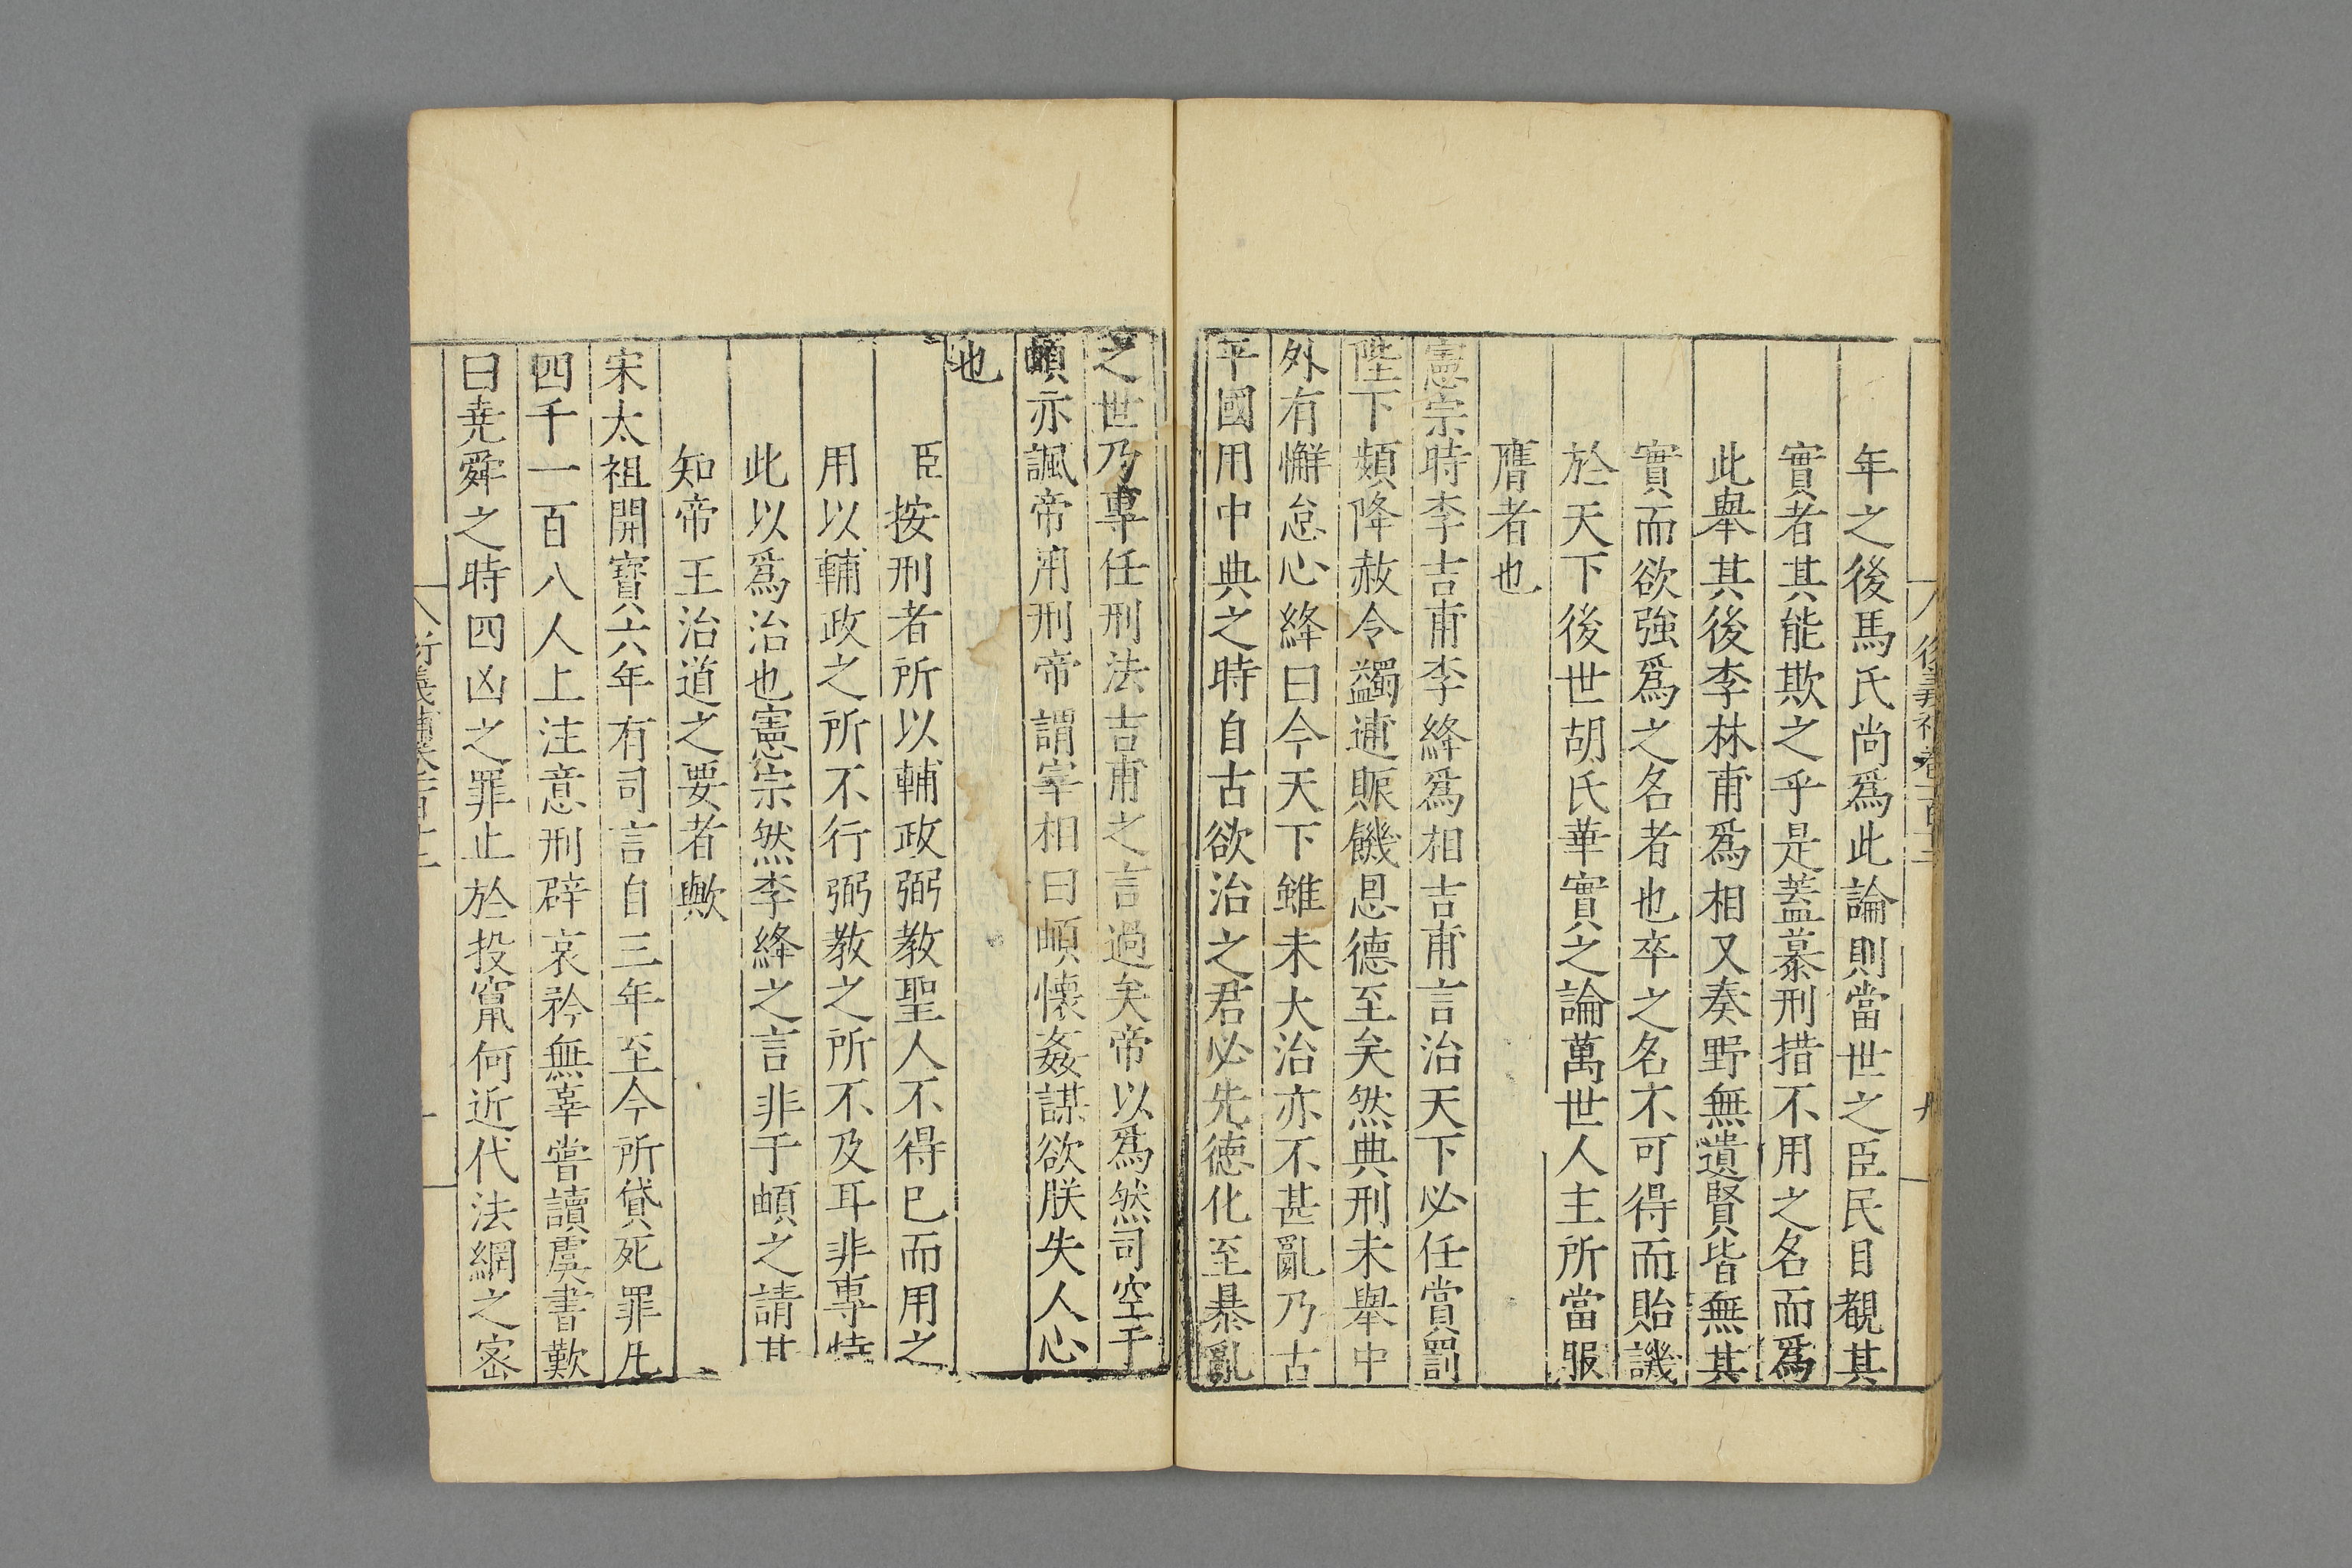 年之後馬氏尚爲此論則當世之臣民目覩其
實者其能欺之乎是蓋慕刑措不用之名而爲
此舉其後李林甫爲相又奏野無遺賢皆無其
實而欲強爲之名者也卒之名不可得而貽譏
於天下後世胡氏華實之論萬世人主所當服
膺者也
憲宗時李吉甫李絳爲相吉甫言治天下必任賞罰
陛下頻降赦令蠲逋賑饑恩德至矣然典刑未舉中
外有懈怠心絳曰今天下雖未大治亦不甚亂乃古
平國用中典之時自古欲治之君必先德化至暴亂
之世乃專任刑法吉甫之言過矣帝以爲然司空于
頔亦諷帝用刑帝謂宰相曰頔懷姦謀欲朕失人心
也
臣按刑者所以輔政弼教聖人不得已而用之
用以輔政之所不行弼教之所不及耳非專恃
此以爲治也憲宗然李絳之言非于頔之請其
知帝王治道之要者歟
宋太祖開寶六年有司言自三年至今所貸死罪凡
四千一百八人上注意刑辟哀矜無辜嘗讀虞書歎
曰堯舜之時四凶之罪止於投竄何近代法網之密